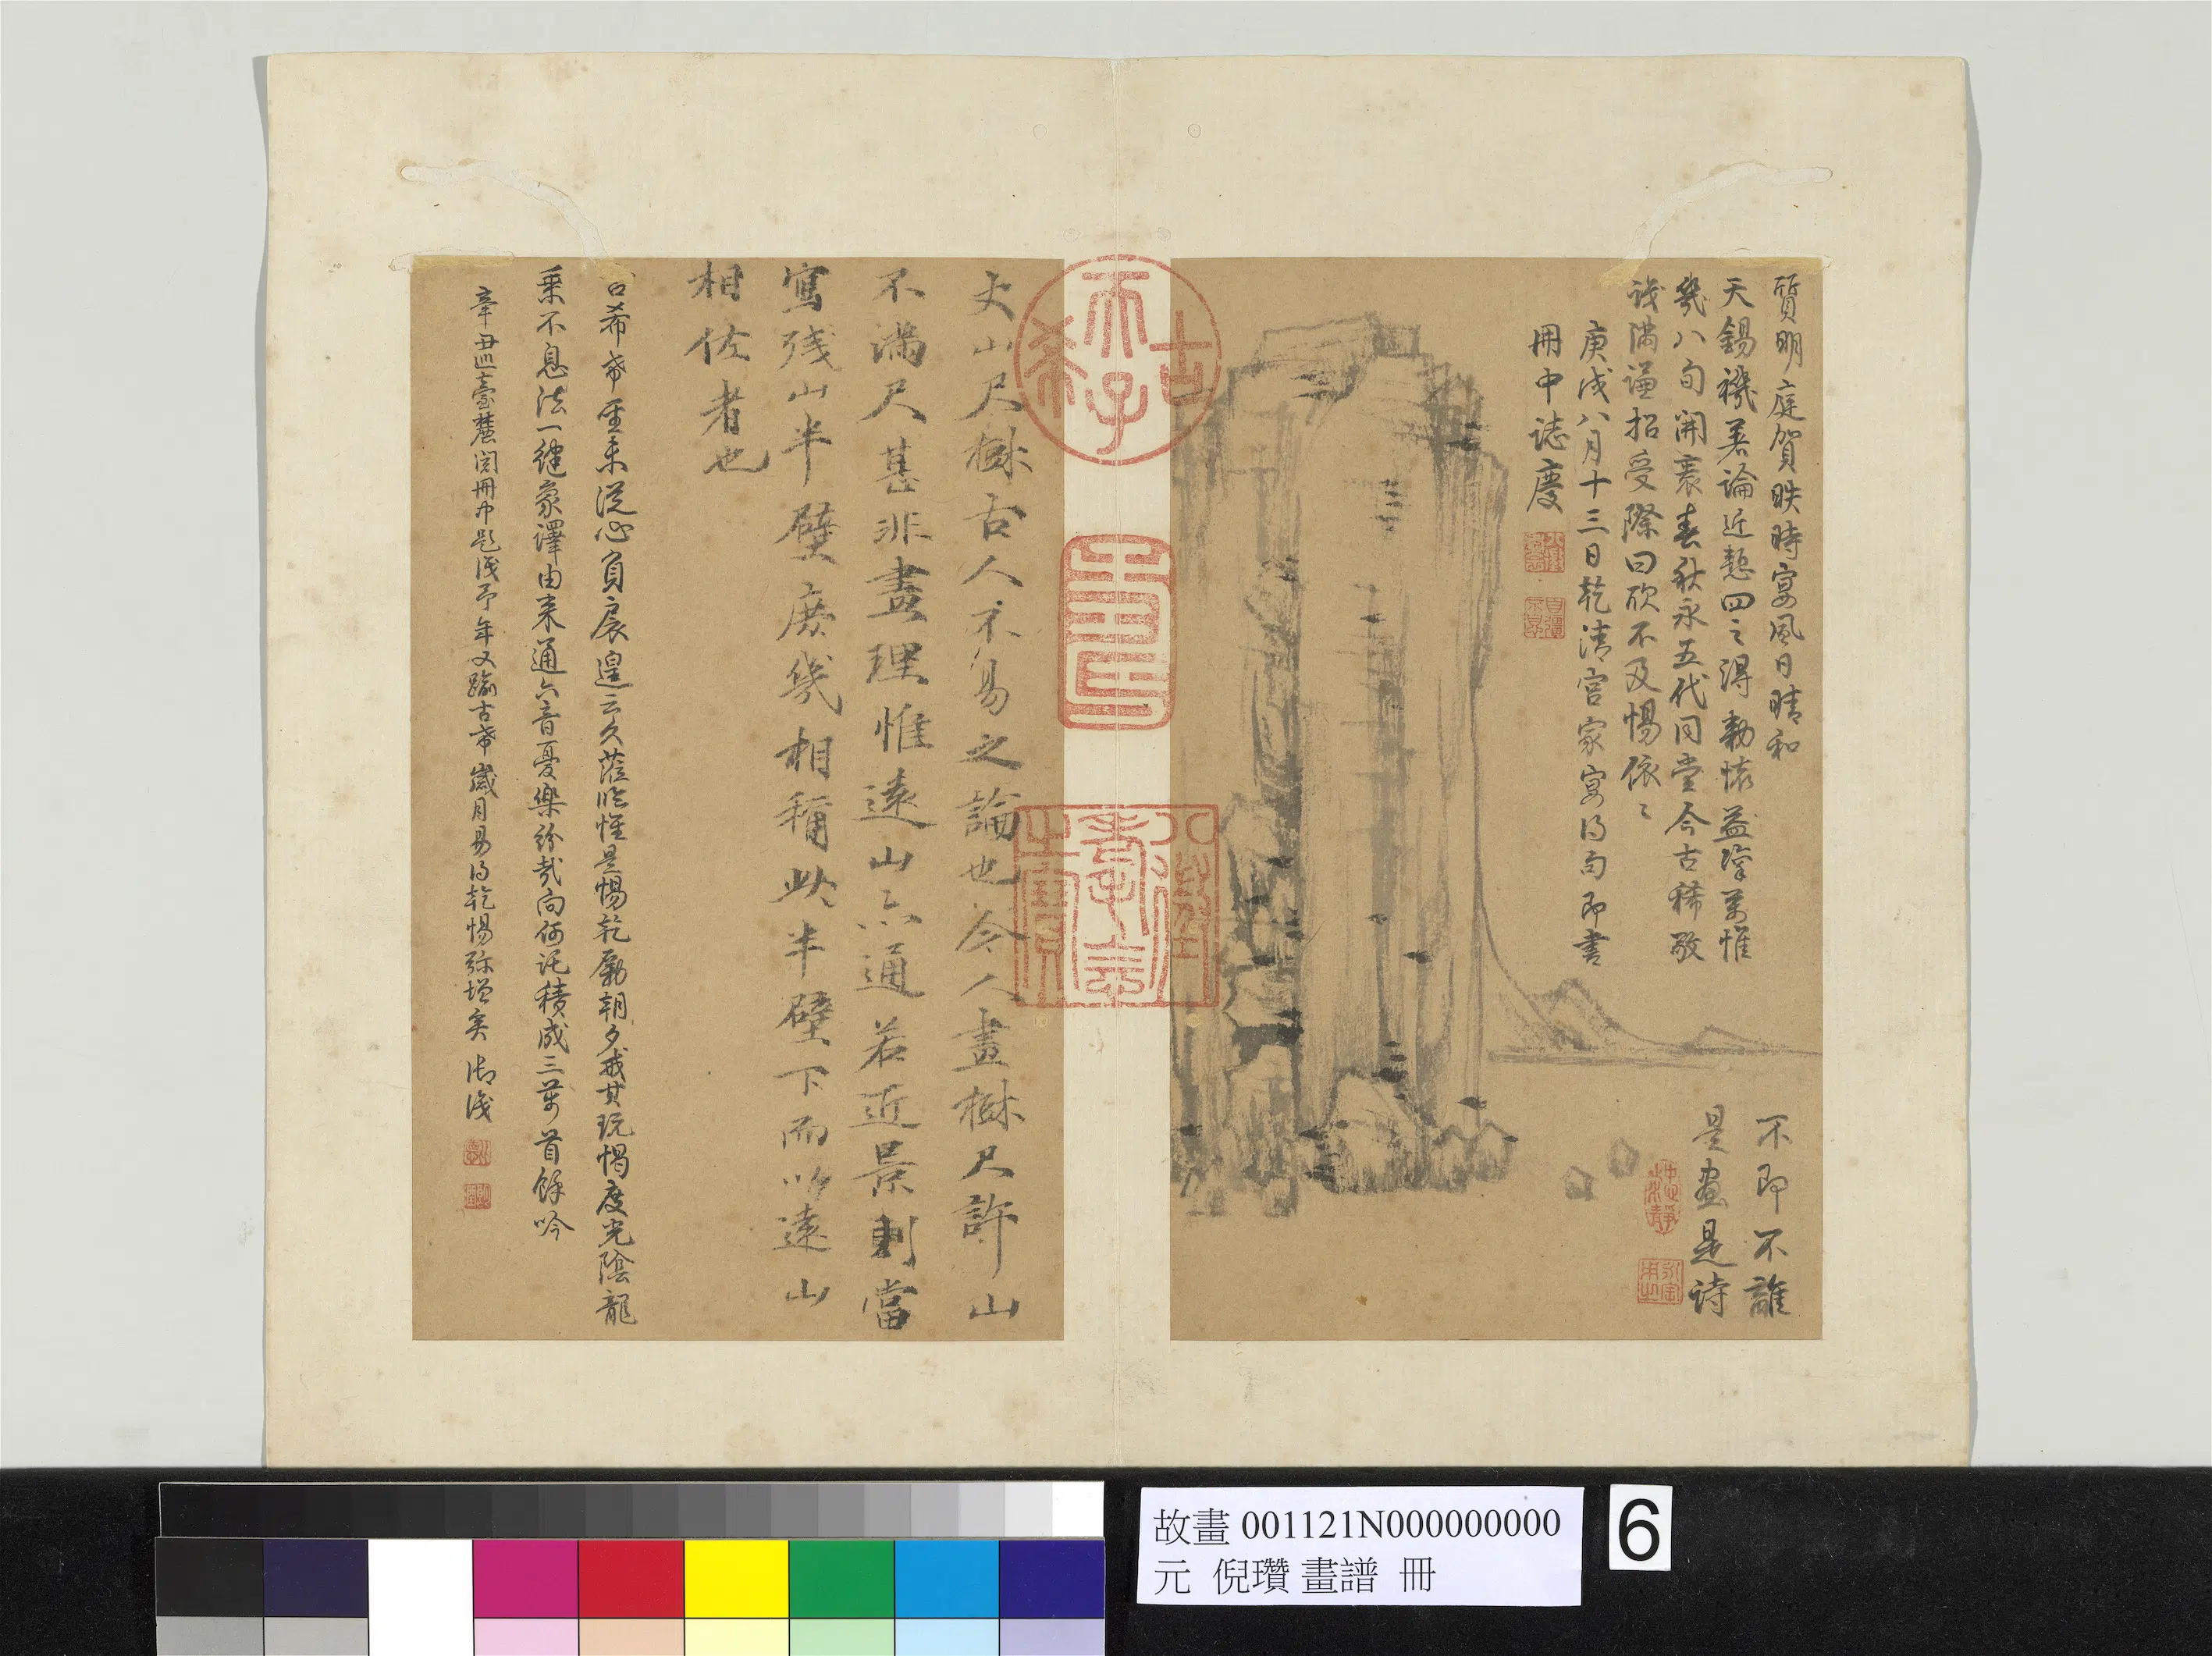 質明庭賀昳時宴風日晴和
天錫禨若論近熱四之得勑懷益懍萬惟
幾八旬開袠春秋永五代同堂今古稀敬
識滿謙招受際曰欣不及惕依〻
庚戌八月十三日乾清宮家宴得句即書
冊中誌慶
不即不離
是畫是詩
古稀天子
壽
八徵耄念之寶
丈山尺樹古人不易之論也今人畫樹尺許山
不滿尺甚非畫理惟遠山亦通若近景則當
寫殘山半壁庶幾相稱此半壁下而以遠山
相佐者也
古希希至未從心負扆遑云久蒞臨惟是惕乾勵朝夕戒其玩愒度光陰龍
乘不息法一健象譯由來通六音憂樂紛哉向何託積成三萬首餘吟
辛丑巡臺麓閱冊中題識予年又踰古希歲月易得乾惕弥增矣 御識
故畫 001121N000000000
元 倪瓚 畫譜 冊
6